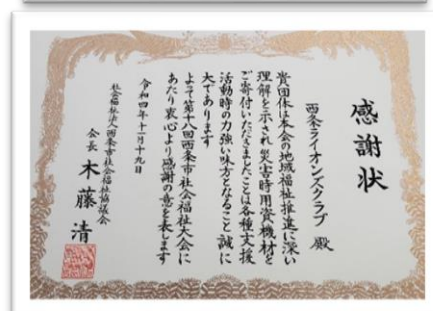 感謝状
西条ライオンズクラブ 殿
貴団体は本会の地域福祉推進に深い
理解を示され災害時用資機材を
ご寄付いただきましたことは各種支援
活動時の力強い味方となること誠に
大であります
よって第十八回西条市社会福祉大会に
あたり衷心より感謝の意を表します
令和四年十一月十九日
社会福祉法人西条市社会福祉協議会
会長 木藤 清